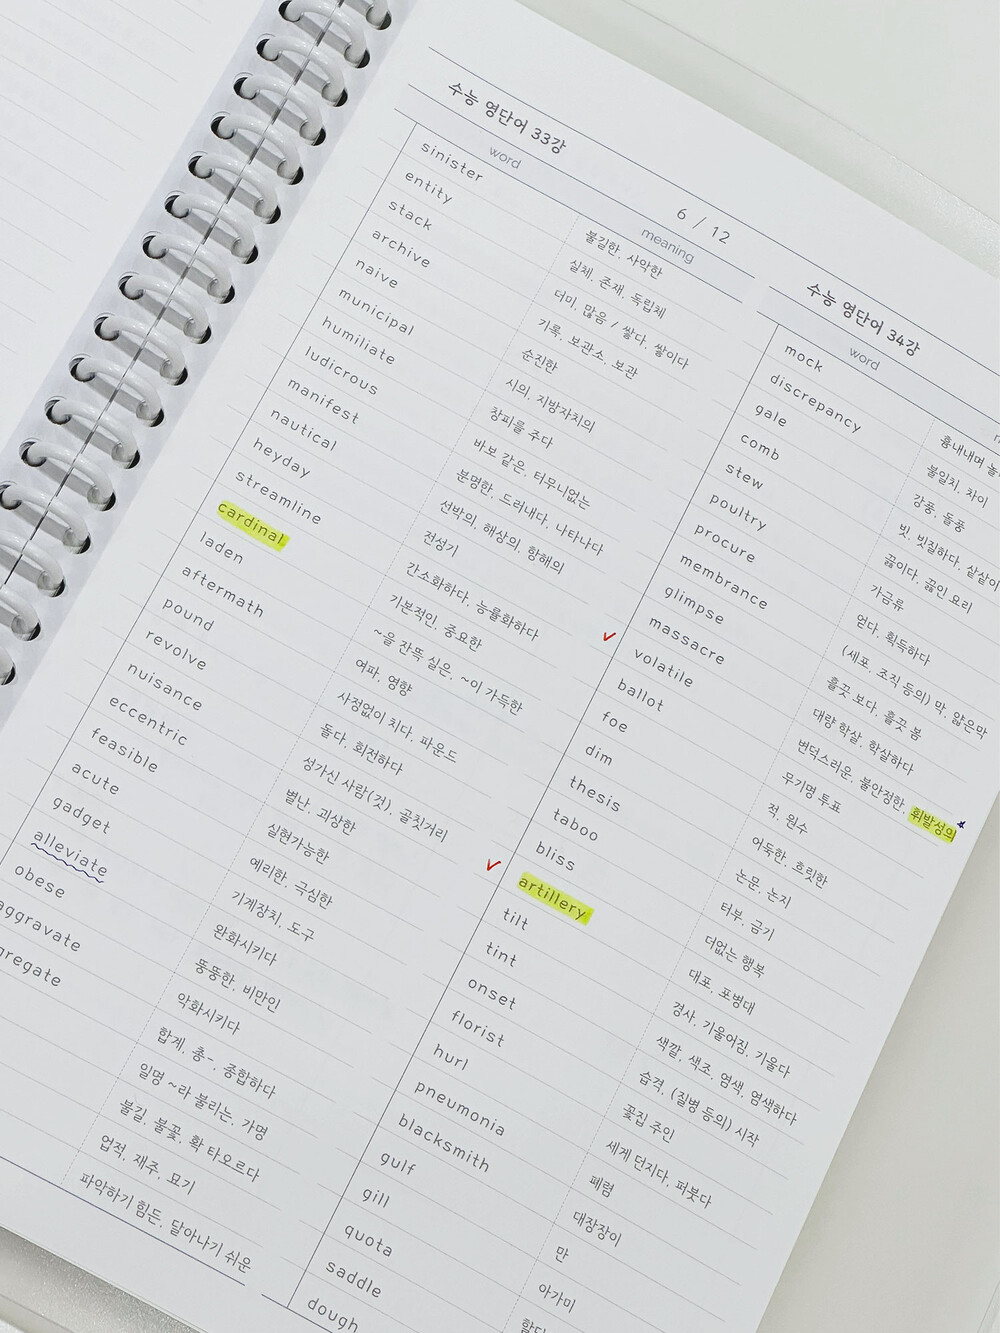 수능 영단어 33강
6 / 12
word meaning
sinister 불길한, 사악한
entity 실체, 존재, 독립체
stack 더미, 많음 / 쌓다, 쌓이다
archive 기록, 보관소, 보관
naive 순진한
municipal 시의, 지방자치의
humiliate 창피를 주다
ludicrous 바보 같은, 터무니없는
manifest 분명한, 드러내다, 나타나다
nautical 선박의, 해상의, 항해의
heyday 전성기
streamline 간소화하다, 능률화하다
cardinal 기본적인, 중요한
laden ~을 잔뜩 실은, ~이 가득한
aftermath 여파, 영향
pound 사정없이 치다, 파운드
revolve 돌다, 회전하다
nuisance 성가신 사람(것), 골칫거리
eccentric 별난, 괴상한
feasible 실현가능한
acute 예리한, 극심한
gadget 기계장치, 도구
alleviate 완화시키다
obese 뚱뚱한, 비만인
aggravate 악화시키다
gregate 합계, 총-, 종합하다
일명 ~라 불리는, 가명
불길, 불꽃, 확 타오르다
업적, 재주, 묘기
파악하기 힘든, 달아나기 쉬운
수능 영단어 34강
word
mock 흉내내며
discrepancy 불일치, 차이
gale 강풍, 돌풍
comb 빗, 빗질하다, 샅샅이
stew 끓이다, 끓인 요리
poultry 가금류
procure 얻다, 획득하다
membrance (세포, 조직 등의) 막, 얇은막
glimpse 흘끗 보다, 흘끗 봄
massacre 대량 학살, 학살하다
volatile 변덕스러운, 불안정한, 휘발성의
ballot 무기명 투표
foe 적, 원수
dim 어둑한, 흐릿한
thesis 논문, 논지
taboo 터부, 금기
bliss 더없는 행복
artillery 대포, 포병대
tilt 경사, 기울어짐, 기울다
tint 색깔, 색조, 염색, 염색하다
onset 습격, (질병 등의) 시작
florist 꽃집 주인
hurl 세게 던지다, 퍼붓다
pneumonia 폐렴
blacksmith 대장장이
gulf 만
gill 아가미
quota
saddle
dough